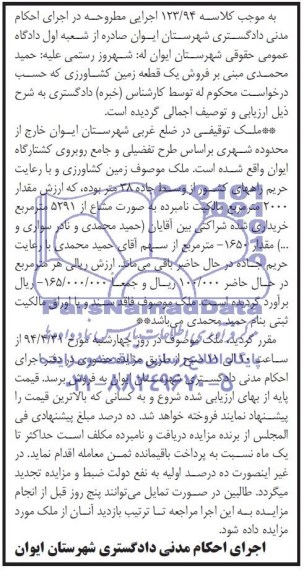 به موجب کلاسه ۱۲۳/۹۴ اجرایی مطروحه در اجرای احکام
مدنی دادگستری شهرستان ایوان صادره از شعبه اول دادگاه
عمومی حقوقی شهرستان ایوان له: شهروز رستمی علیه: حمید
محمدی مبنی بر فروش یک قطعه زمین کشاورزی که حسب
درخواست محکوم له توسط کارشناس (خبره) دادگستری به شرح
ذیل ارزیابی و توصیف اجمالی گردیده است.
**ملک توقیفی در ضلع غربی شهرستان ایوان خارج از
محدوده شهری براساس طرح تفضیلی و جامع روبروی کشتارگاه
ایوان واقع شده است. ملک موصوف زمین کشاورزی و با رعایت
حریم راههای کشور از وسط جاده ۳۸ متر بوده، که ارزش مقدار
۲۰۰۰ مترمربع مالکیت نامبرده به صورت مشاع از ۵۲۹۱ مترمربع
خریداری شده شراکتی بین آقایان (حمید محمدی و نادر سواری و
...) مقدار ۱۶۵۰- مترمربع از سهم آقای حمید محمدی با رعایت
حریم جاده در حال حاضر باقی می‌ماند. ارزش ریالی هر مترمربع
در حال حاضر ۱۰۰/۰۰۰ ریال و جمعا ۱۶۵/۰۰۰/۰۰۰- ریال
برآورد گردیده است. ملک موصوف فاقد سند و یا اوراق مالکیت
ثبتی بنام حمید محمدی می‌باشد**
مقرر گردید ملک موصوف در روز چهارشنبه مورخ ۹۴/۴/۳۱ از
ساعت ۱۰ الی ۱۱ صبح از طریق مزایده حضوری در دفتر اجرای
احکام مدنی دادگستری شهرستان ایوان به فروش برسد. قیمت
پایه از بهای ارزیابی شده شروع و به کسانی که بالاترین قیمت را
پیشنهاد نمایند فروخته خواهد شد. ده درصد مبلغ پیشنهادی فی
المجلس از برنده مزایده دریافت و نامبرده مکلف است حداکثر تا
یک ماه نسبت به پرداخت باقیمانده ثمن معامله اقدام نماید. در
غیر اینصورت ده درصد اولیه به نفع دولت ضبط و مزایده تجدید
میگردد. طالبین در صورت تمایل می‌توانند پنج روز قبل از انجام
مزایده به این اجرا مراجعه تا ترتیب بازدید آنان از ملک مورد
مزایده داده شود.
اجرای احکام مدنی دادگستری شهرستان ایوان
ParsNamadData